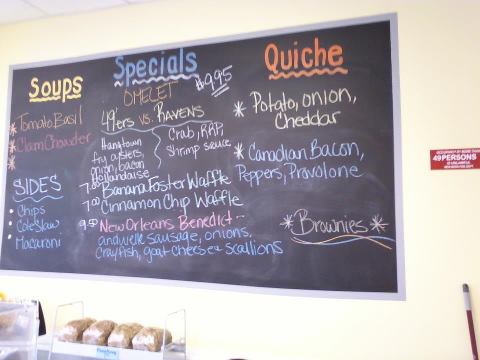 Soups
* Tomato Basil
* Clam Chowder
*
SIDES
• Chips
• Coleslaw
• Macaroni
Specials
OMELET $9.95
49ers vs. RAVENS
Hangtown
fry oysters,
onion, bacon
hollandaise
Crab, RRP,
Shrimp sauce
7.00 Banana Foster Waffle
7.00 Cinnamon Chip Waffle
9.50 New Orleans Benedict --
andouille sausage, onions,
crayfish, goat cheese scallions
Quiche
* Potato, onion,
Cheddar
* Canadian Bacon,
Peppers, Provolone
* Brownies *
49 PERSONS